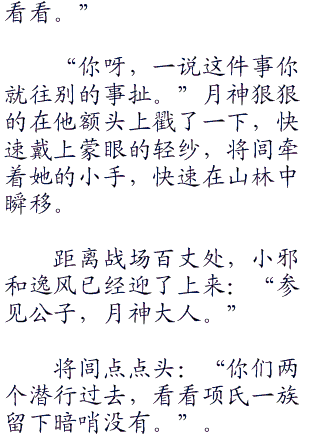 看看。”
“你呀，一说这件事你
就往别的事扯。”月神狠狠
的在他额头上戳了一下，快
速戴上蒙眼的轻纱，将闾牵
着她的小手，快速在山林中
瞬移。
距离战场百丈处，小邪
和逸风已经迎了上来：“参
见公子，月神大人。”
将闾点点头：“你们两
个潜行过去，看看项氏一族
留下暗哨没有。”。